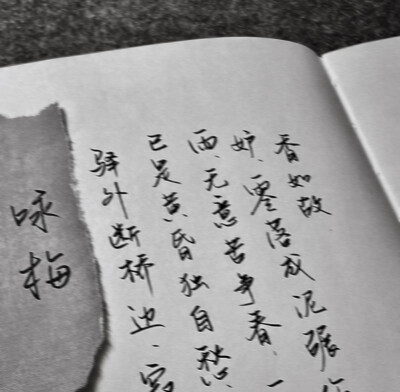 咏梅
驿外断桥边.
已是黄昏独自愁
雨.无意苦争春.一
妒.零落成泥碾
香如故